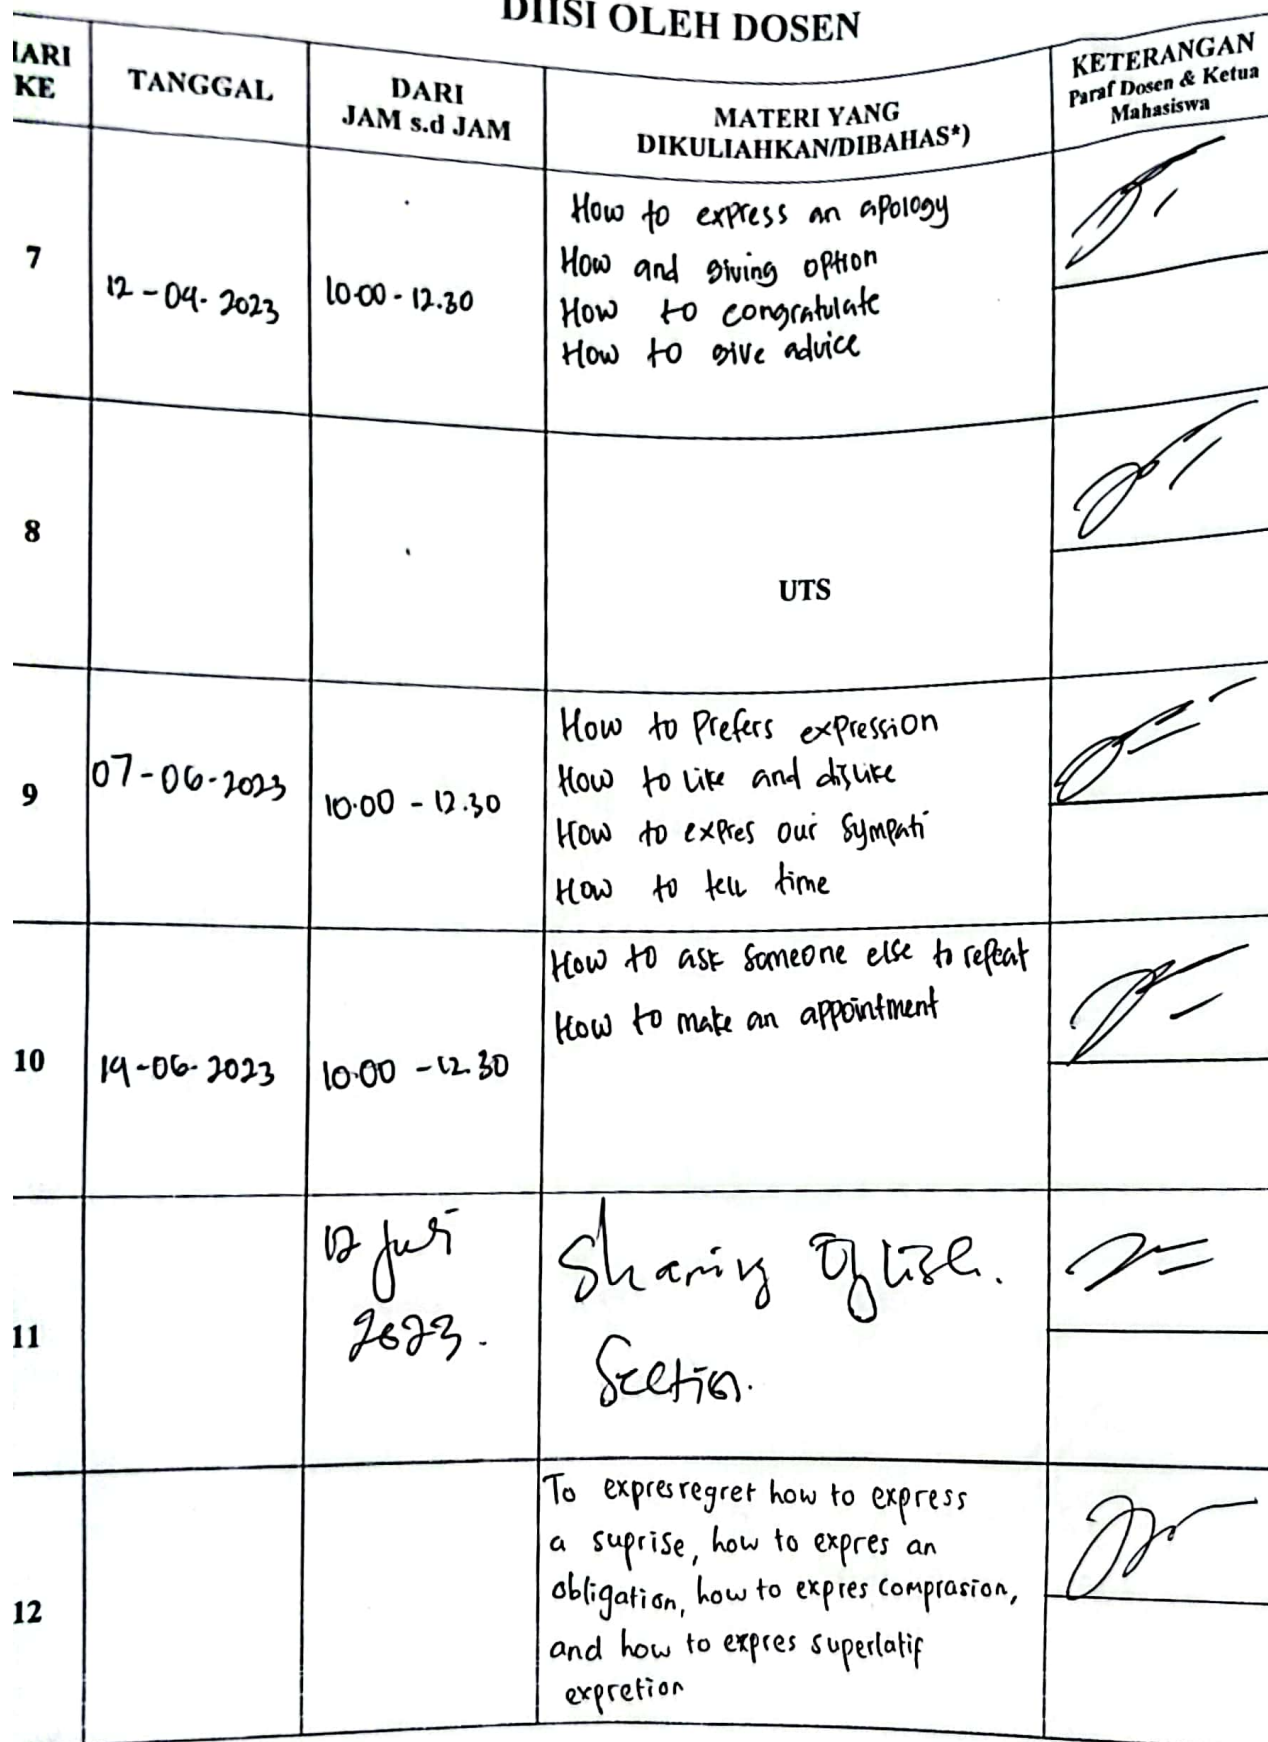 DIISI OLEH DOSEN
HARI
KE
TANGGAL
DARI
JAM s.d JAM
MATERI YANG
DIKULIAHKAN/DIBAHAS*)
KETERANGAN
Paraf Dosen & Ketua
Mahasiswa
7
12-04-2023
10.00 - 12.30
How to express an apology
How and giving option
How to congratulate
How to give advice
8
UTS
9
07-06-2023
10.00 - 12.30
How to Prefers expression
How to like and dislike
How to expres our Sympati
How to tell time
10
14-06-2023
10.00 - 12.30
How to ask someone else to repeat
How to make an appointment
11
12 Juli
2023.
Sharing
Section.
12
To expres regret how to express
a suprise, how to expres an
obligation, how to expres comprasion,
and how to expres superlatif
expretion